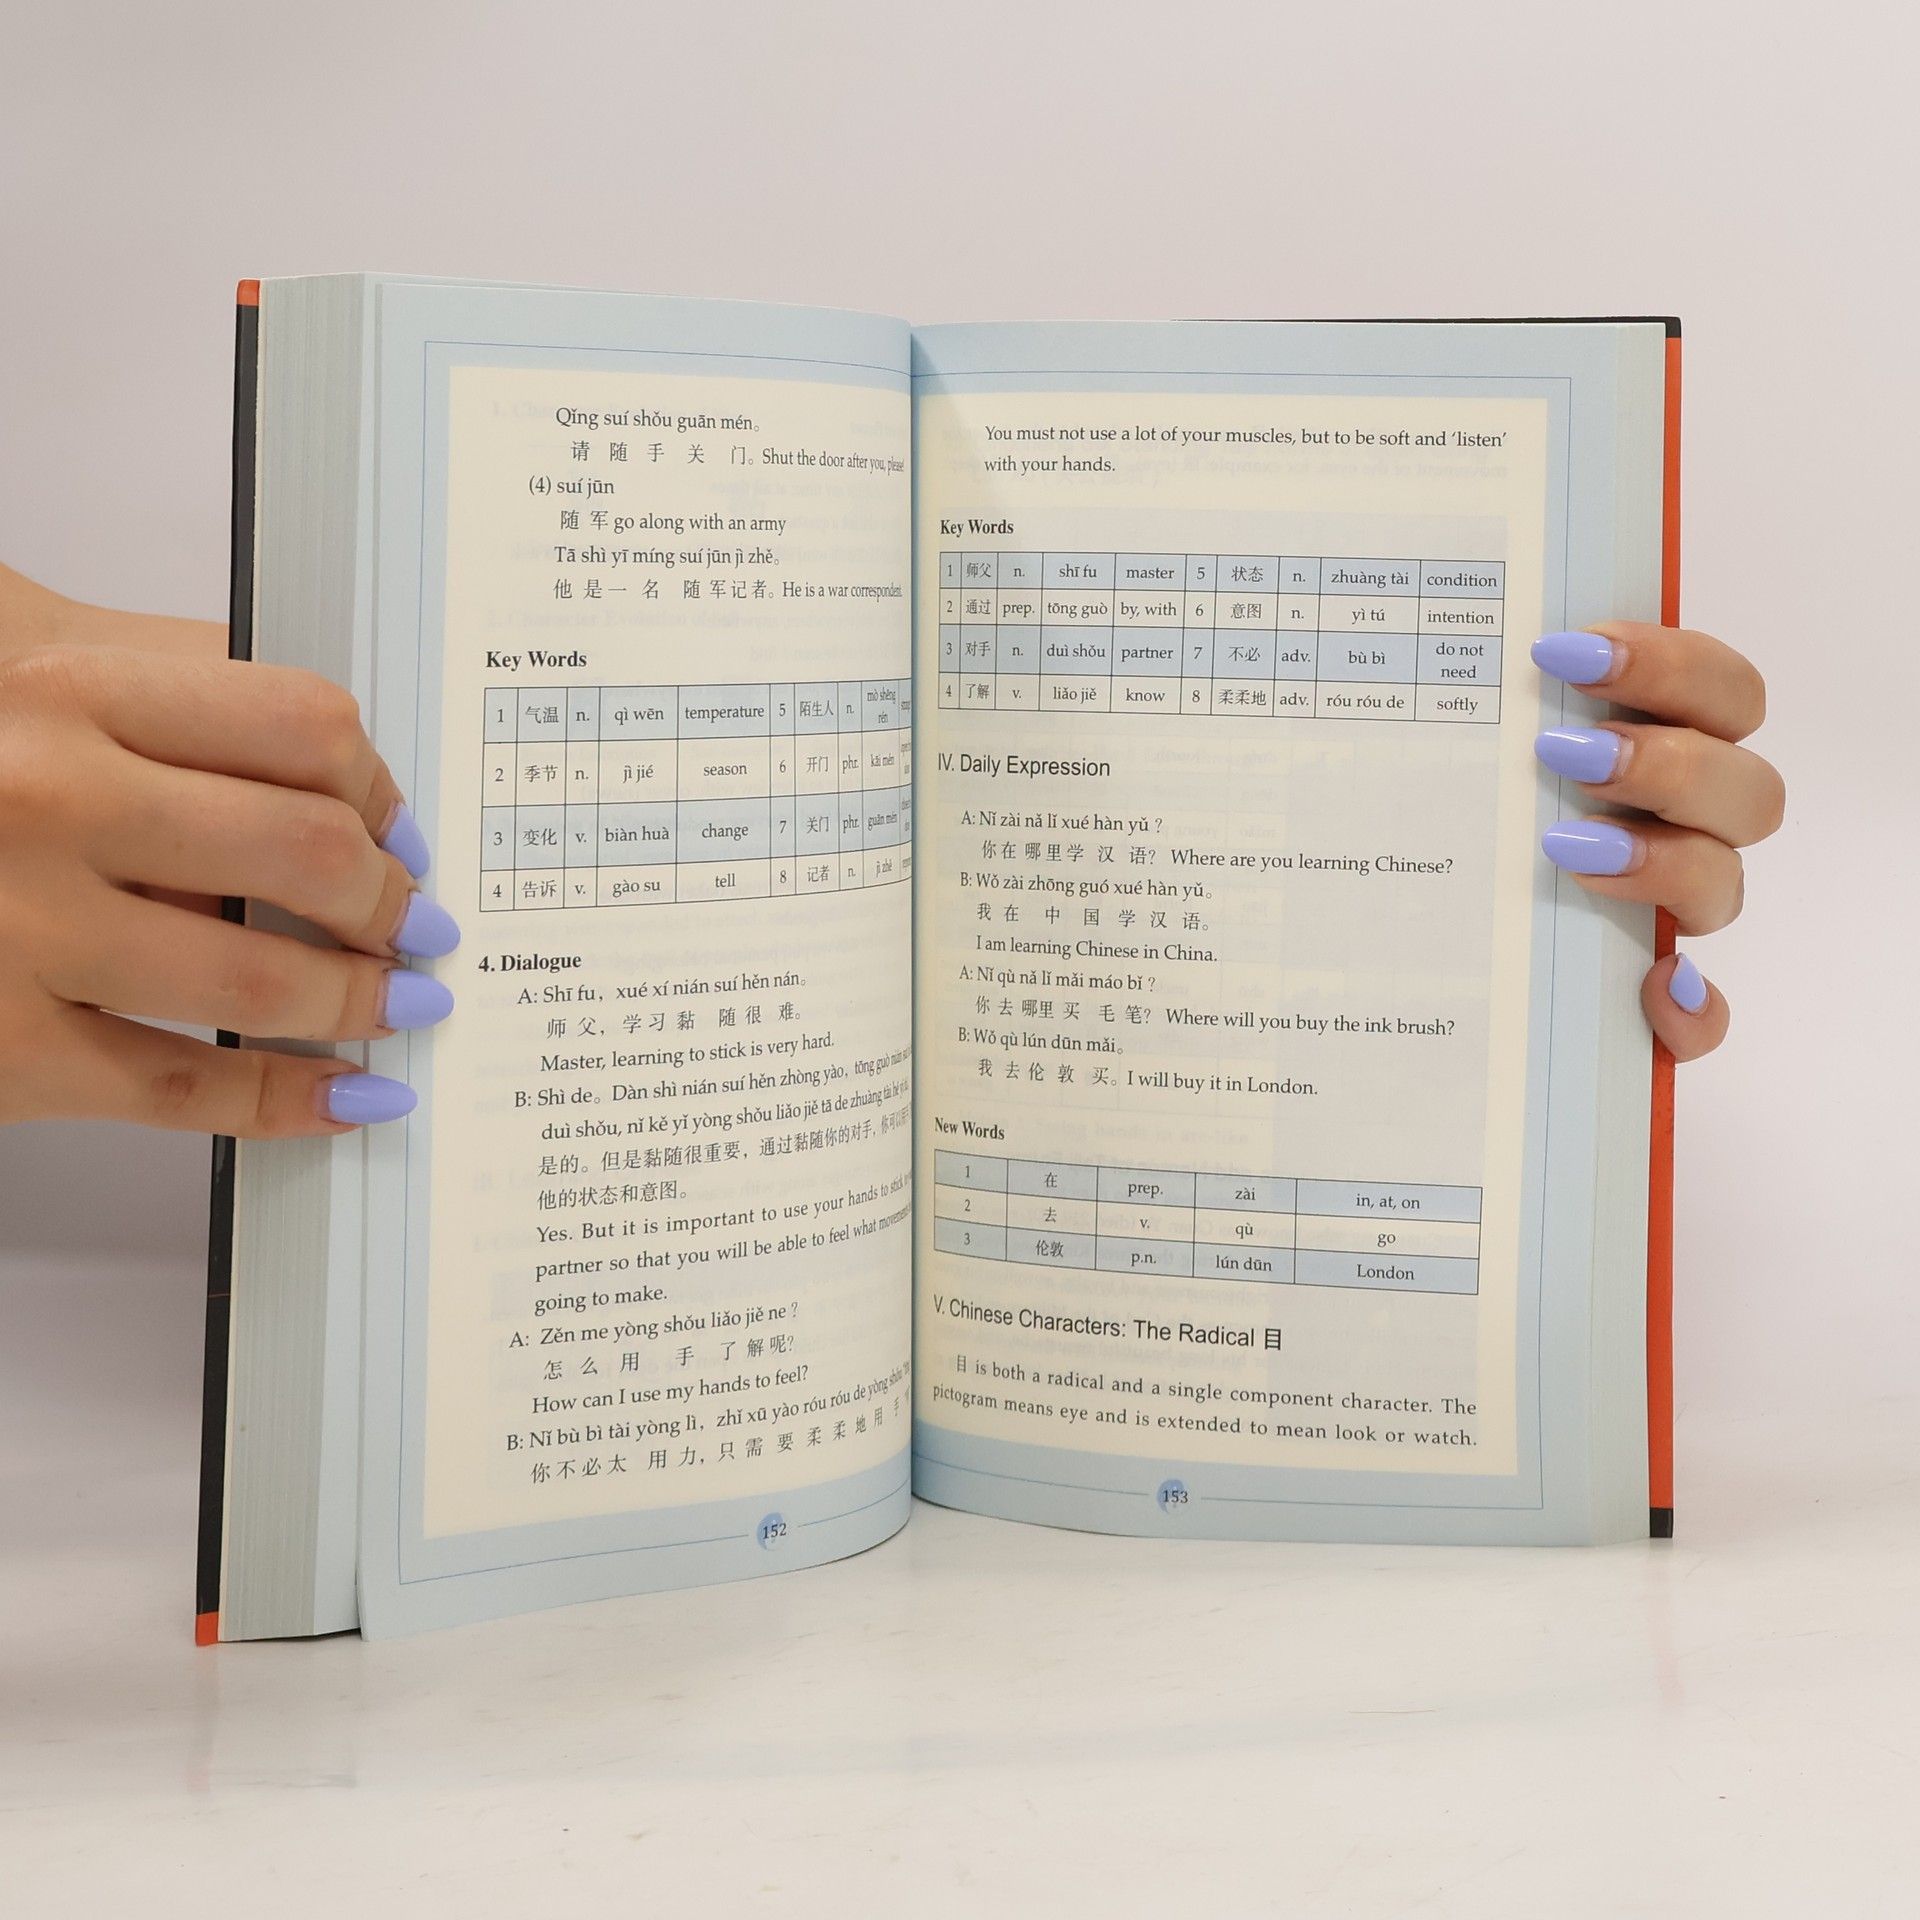 Qǐng suí shǒu guān mén。
请 随 手 关 门。Shut the door after you, please!
(4) suí jūn
随 军 go along with an army
Tā shì yī míng suí jūn jì zhě。
他 是 一 名 随 军 记 者。He is a war correspondent.
Key Words
1 气温 n. qì wēn temperature 5 陌生人 n. mò shēng rén
2 季节 n. jì jié season 6 开门 phr. kāi mén
3 变化 v. biàn huà change 7 关门 phr. guān mén
4 告诉 v. gào su tell 8 记者 n. jì zhě
4. Dialogue
A: Shī fu，xué xí nián suí hěn nán。
师 父，学 习 黏 随 很 难。
Master, learning to stick is very hard.
B: Shì de。Dàn shì nián suí hěn zhòng yào，tōng guò nián suí
duì shǒu, nǐ kě yǐ yòng shǒu liǎo jiě tā de zhuàng tài hé yì tú.
是的。但是黏随很重要，通过黏随你的对手，你可以用手
他的状态和意图。
Yes. But it is important to use your hands to stick to
partner so that you will be able to feel what movement
going to make.
A: Zěn me yòng shǒu liǎo jiě ne？
怎 么 用 手 了 解 呢？
How can I use my hands to feel?
B: Nǐ bù bì tài yòng lì，zhǐ xū yào róu róu de yòng shǒu
你 不 必 太 用 力，只 需 要 柔 柔 地 用 手
152
You must not use a lot of your muscles, but to be soft and ‘listen’
with your hands.
Key Words
1 师父 n. shī fu master 5 状态 n. zhuàng tài condition
2 通过 prep. tōng guò by, with 6 意图 n. yì tú intention
3 对手 n. duì shǒu partner 7 不必 adv. bù bì do not need
4 了解 v. liǎo jiě know 8 柔柔地 adv. róu róu de softly
IV. Daily Expression
A: Nǐ zài nǎ lǐ xué hàn yǔ？
你 在 哪 里 学 汉 语？ Where are you learning Chinese?
B: Wǒ zài zhōng guó xué hàn yǔ。
我 在 中 国 学 汉 语。
I am learning Chinese in China.
A: Nǐ qù nǎ lǐ mǎi máo bǐ？
你 去 哪 里 买 毛 笔？ Where will you buy the ink brush?
B: Wǒ qù lún dūn mǎi。
我 去 伦 敦 买。I will buy it in London.
New Words
1 在 prep. zài in, at, on
2 去 v. qù go
3 伦敦 p.n. lún dūn London
V. Chinese Characters: The Radical 目
目 is both a radical and a single component character. The
pictogram means eye and is extended to mean look or watch.
153